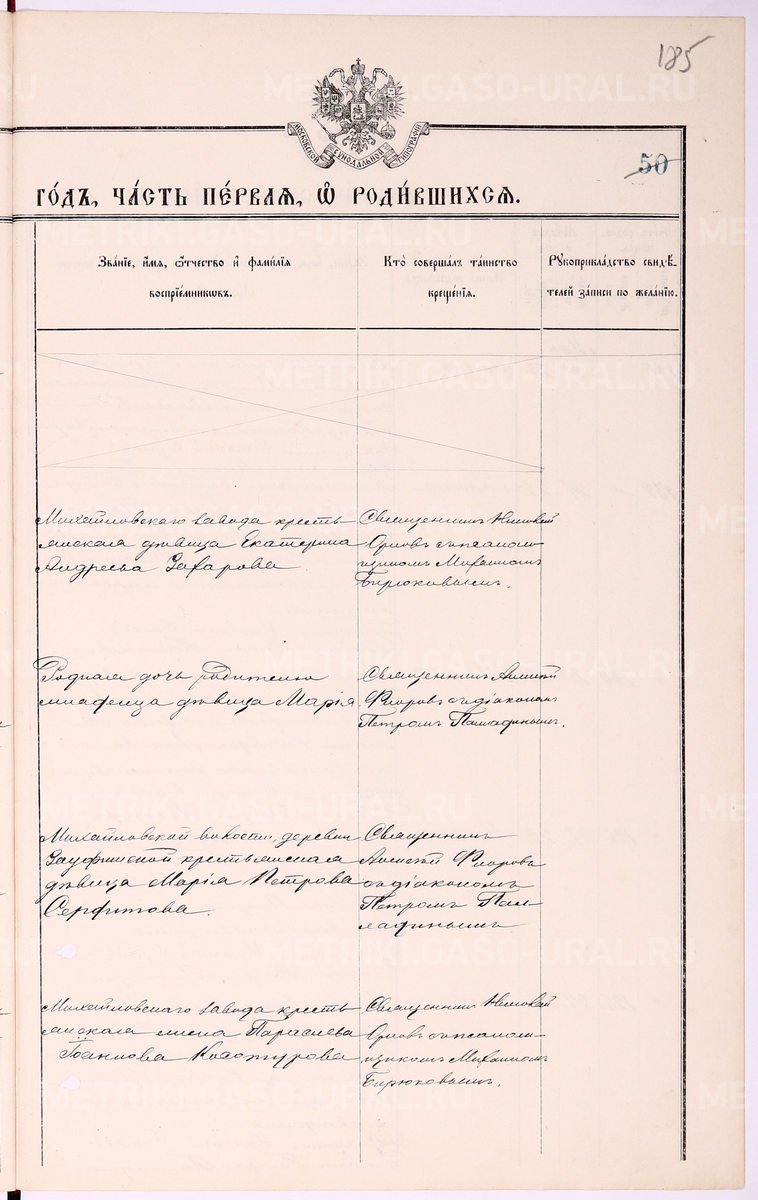 185
МОСКОВСКОЙ СѴНОДАЛЬНОЙ ТИПОГРАФІИ
50
ГО́ДЪ, ЧА́СТЬ ПЕ́РВАЯ, Ѽ РОДИ́ВШИХСЯ.
Зва́нїе, и҆́мя, ѻ҆́тчество и҆ фами́лїя
воспрїе́мникѡвъ.
Кто̀ соверша́лъ та́инство
креще́нїя.
Рꙋкоприкла́дство свидѣ́-
телей за́писи по жела́нїю.
Михайловскаго завода кресть-
янская дѣвица Екатерина
Андреева Захарова.
Священникъ Николай
Орловъ съ псалом-
щикомъ Михаиломъ
Бирюковымъ.
Родная дочь родителю
младенца дѣвица Марія
Священникъ Алексѣй
Флоровъ съ діакономъ
Петромъ
Михайловской волости, деревни
Зауфимской крестьянская
дѣвица Марія Петрова
Священникъ
Алексѣй Флоровъ
съ діакономъ
Петромъ
Михайловскаго завода кресть-
янская жена Параскева
Іоаннова
Священникъ Николай
Орловъ съ псалом-
щикомъ Михаиломъ
Бирюковымъ.
METRIKI.GASO-URAL.RU